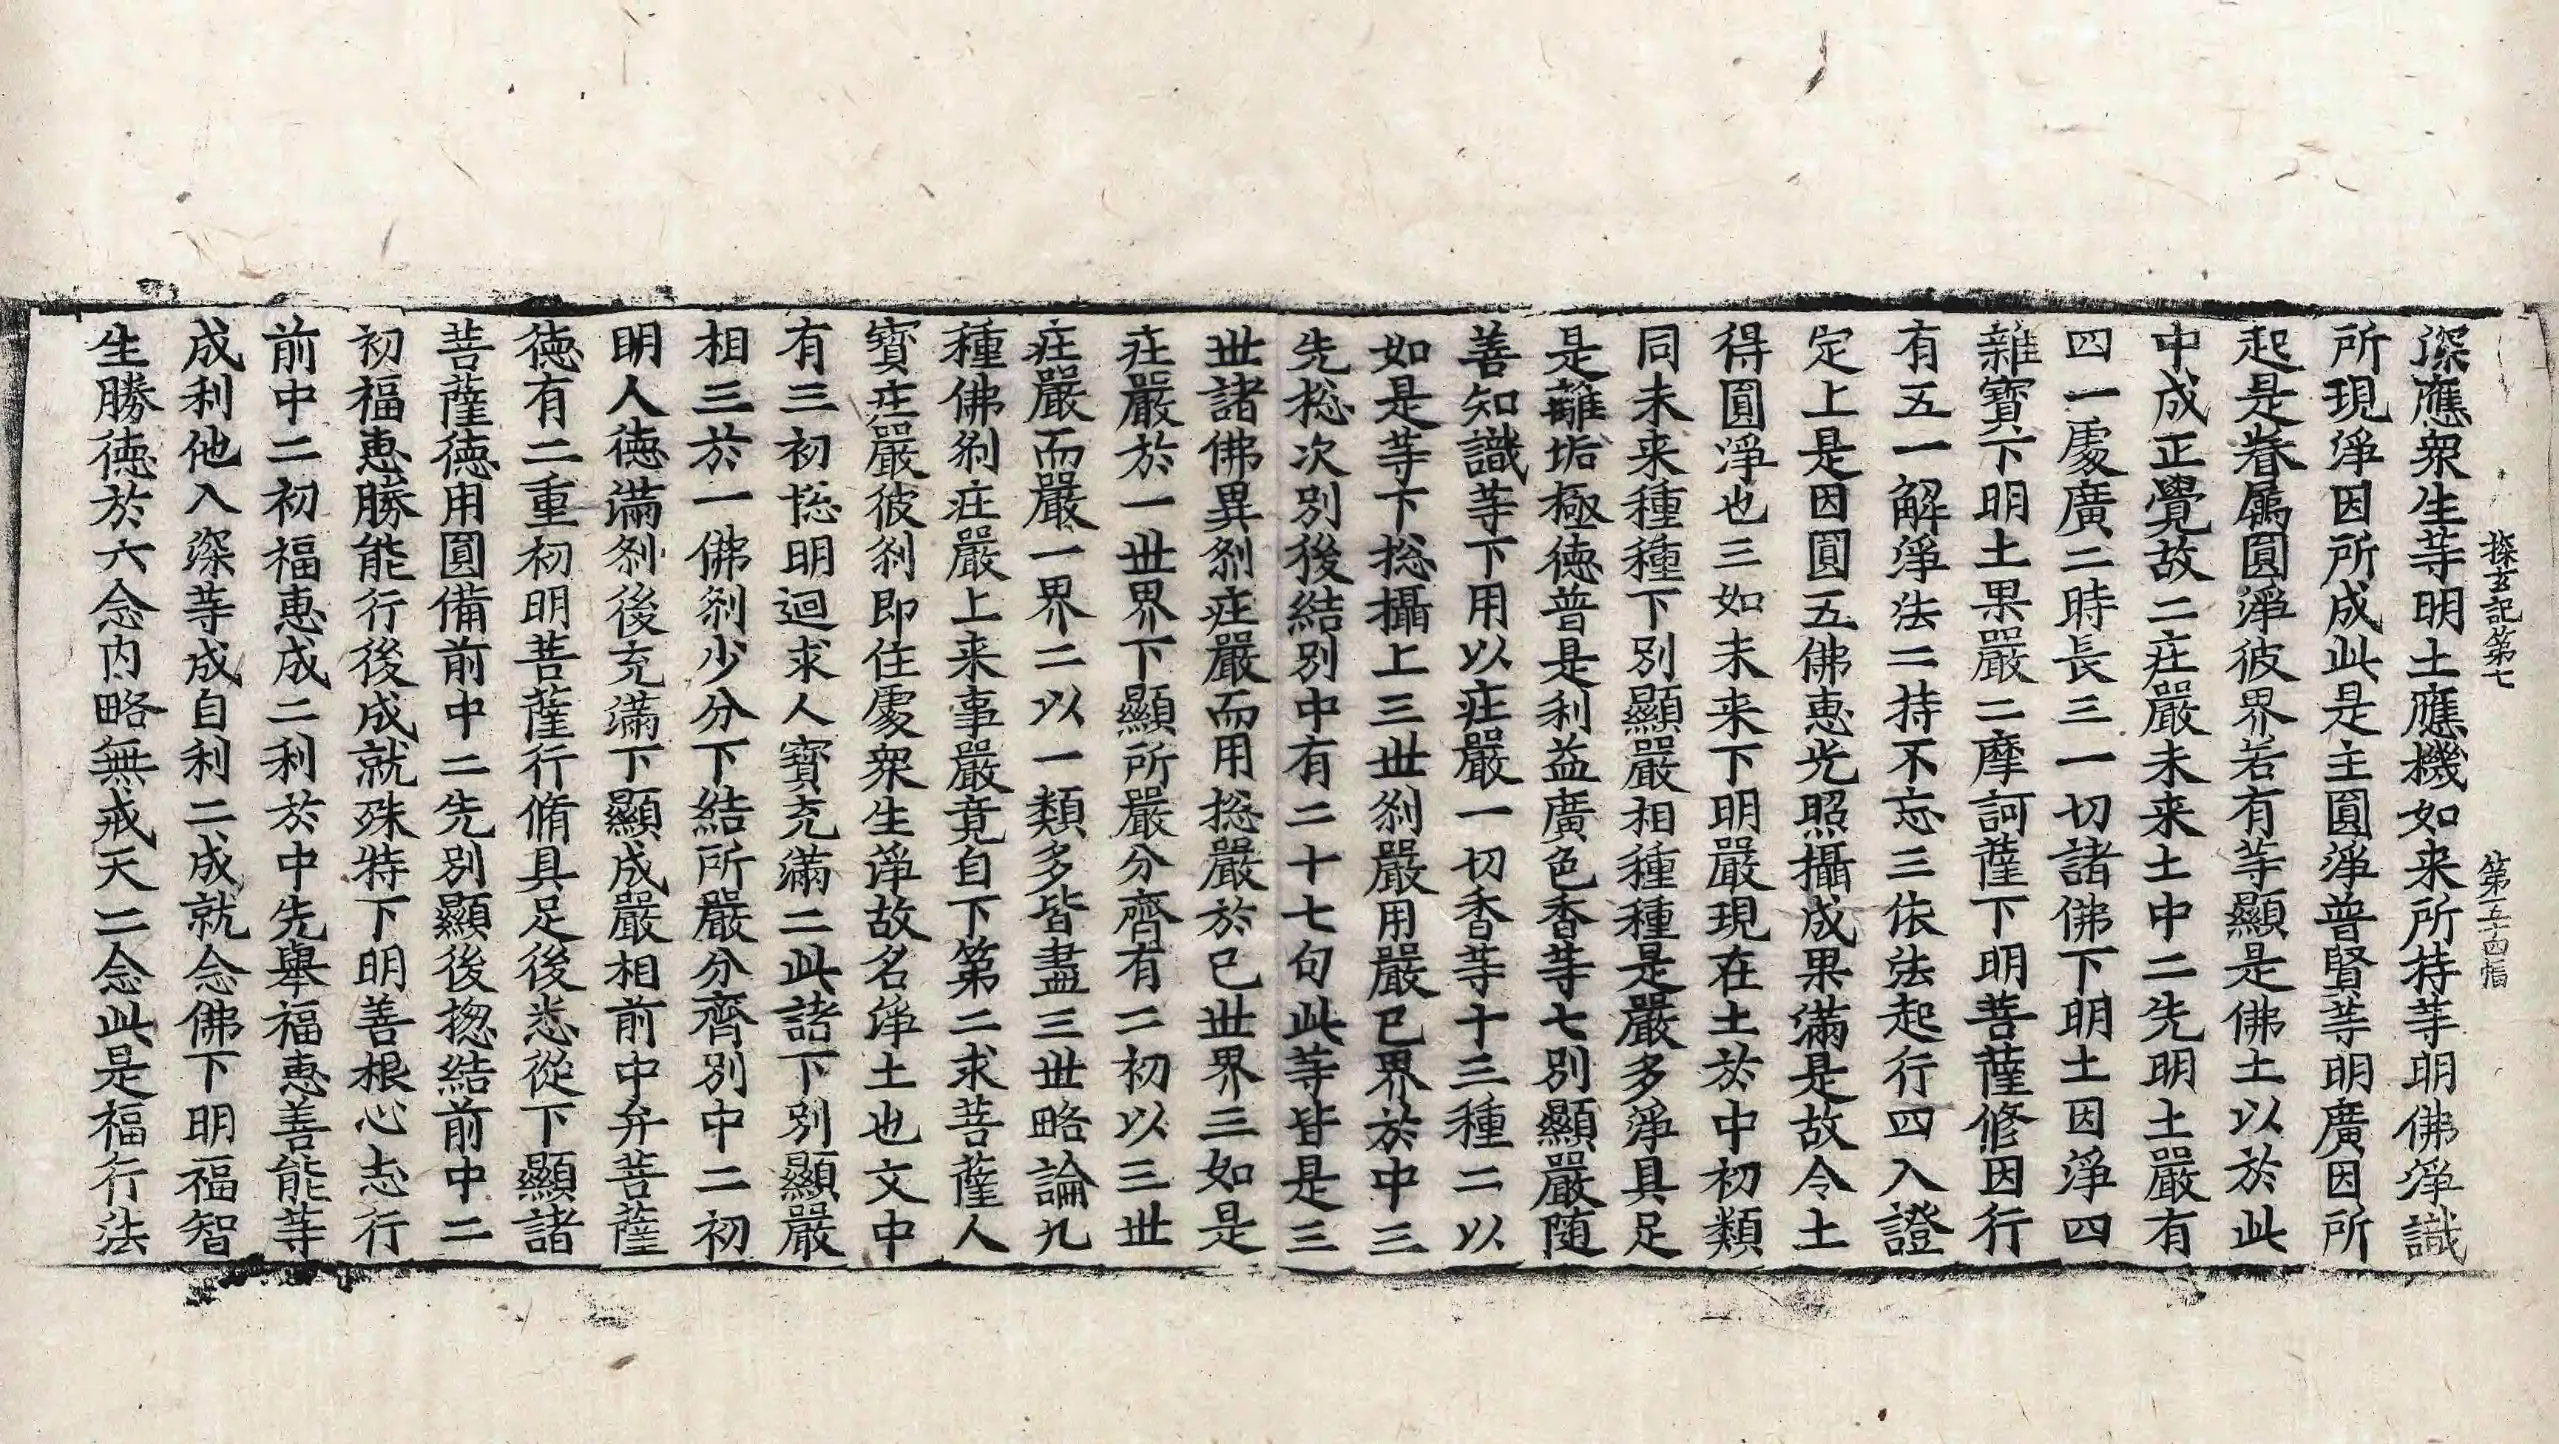 探玄記第七 第五十四幅
深應衆生等明土應機如来所持等明佛淨識
所現淨因所成此是主圓淨普賢等明廣因所
起是眷屬圓淨彼界若有等顯是佛土以於此
中成正覺故二庄嚴未来土中二先明土嚴有
四一處廣二時長三一切諸佛下明土因淨四
雜寶下明土果嚴二摩訶薩下明菩薩修因行
有五一解淨法二持不忘三依法起行四入證
定上是因圓五佛惠光照攝成果滿是故令土
得圓淨也三如未来下明嚴現在土於中初類
同未来種種下別顯嚴相種種是嚴多淨具足
是離垢極德普是利益廣色香等七別顯嚴随
善知識等下用以庄嚴一切香等十三種二以
如是等下捴攝上三世刹嚴用嚴已界於中三
先捴次別後結別中有二十七句此等皆是三
世諸佛異刹庄嚴而用捴嚴於己世界三如是
庄嚴於一世界下顯所嚴分齊有二初以三世
庄嚴而嚴一界二以一類多皆盡三世略論九
種佛刹庄嚴上来事嚴竟自下第二求菩薩人
寶庄嚴彼刹即住處衆生淨故名淨土也文中
有三初捴明迴求人寶充滿二此諸下別顯嚴
相三於一佛刹少分下結所嚴分齊別中二初
明人德滿刹後充滿下顯成嚴相前中弁菩薩
德有二重初明菩薩行脩具足後悉從下顯諸
菩薩德用圓備前中二先別顯後捴結前中二
初福惠勝能行後成就殊特下明善根心志行
前中二初福惠成二利於中先舉福惠善能等
成利他入深等成自利二成就念佛下明福智
生勝德於六念内略無戒天二念此是福行法